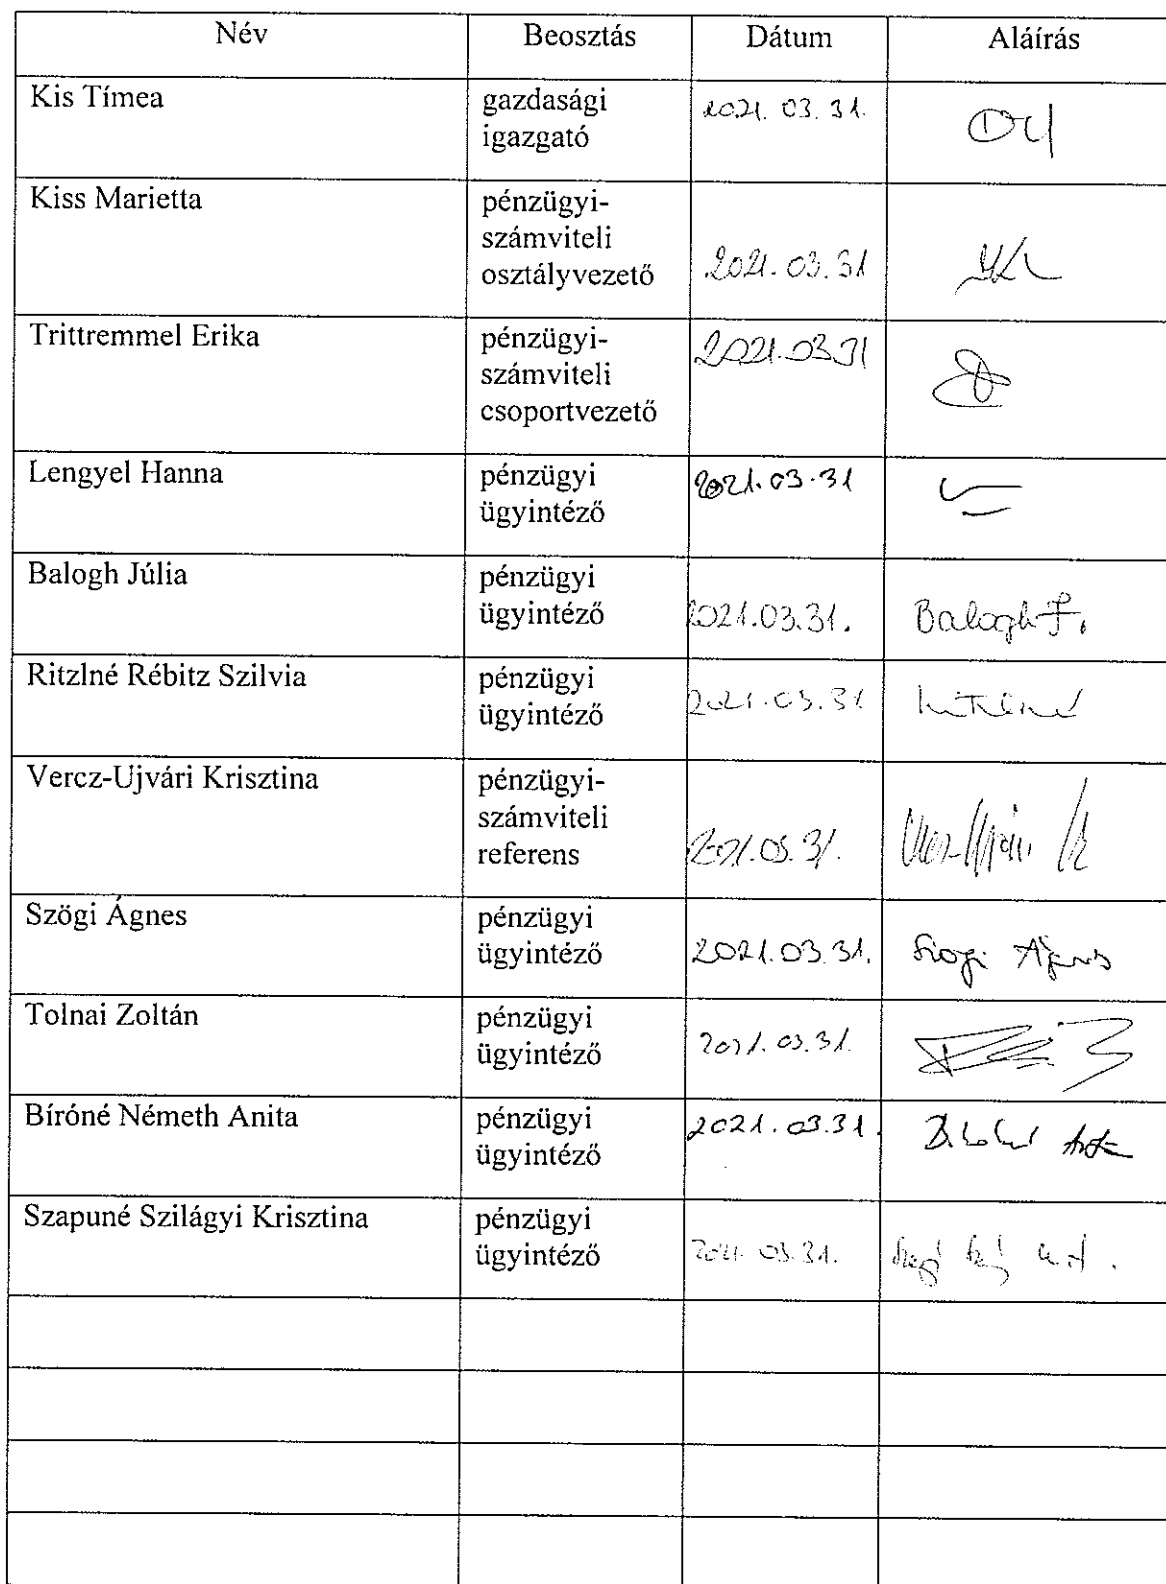 Név Beosztás Dátum Aláírás
Kis Tímea gazdasági 2021. 03. 31.
igazgató
Kiss Marietta pénzügyi-
számviteli
osztályvezető 2021. 03. 31
Trittremmel Erika pénzügyi- 2021.03.31
számviteli
csoportvezető
Lengyel Hanna pénzügyi 2021.03.31
ügyintéző
Balogh Júlia pénzügyi
ügyintéző 2021.03.31. Balogh J.
Ritzlné Rébitz Szilvia pénzügyi
ügyintéző 2021.03.31
Vercz-Ujvári Krisztina pénzügyi-
számviteli
referens 2021.03.31.
Szögi Ágnes pénzügyi
ügyintéző 2021.03.31. Szögi Ágnes
Tolnai Zoltán pénzügyi
ügyintéző 2021.03.31.
Bíróné Németh Anita pénzügyi 2021.03.31.
ügyintéző
Szapuné Szilágyi Krisztina pénzügyi
ügyintéző 2021.03.31.